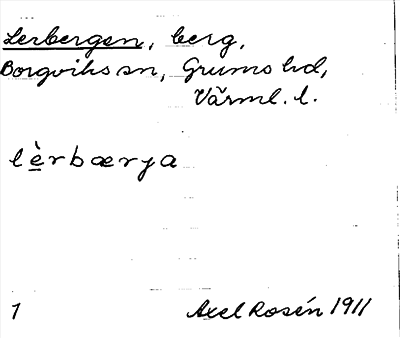 Lerbergen, berg,
Borgviks sn, Grums hd,
Värml. l.
lèrbærja
1 Axel Rosén 1911